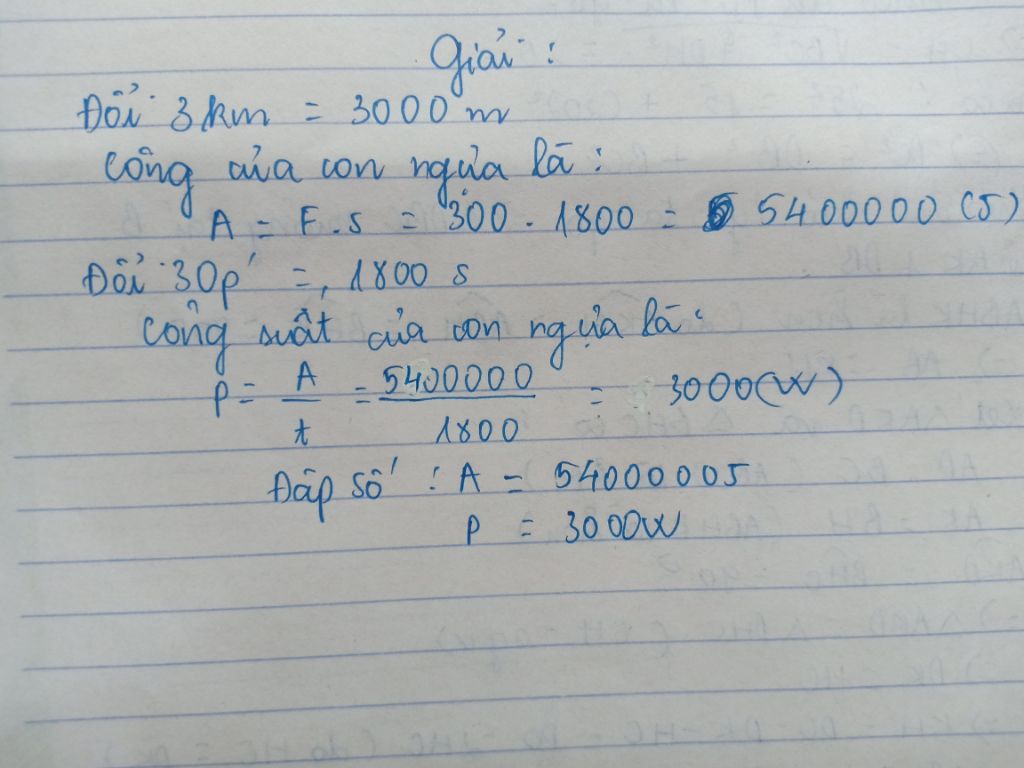 Giải:
Đổi 3km = 3000 m
Công của con ngựa là:
A = F.s = 300 . 1800 = 5400000 (J)
Đổi 30p' = 1800 s
Công suất của con ngựa là:
P = A/t = 5400000/1800 = 3000(W)
Đáp số : A = 5400000J
P = 3000W